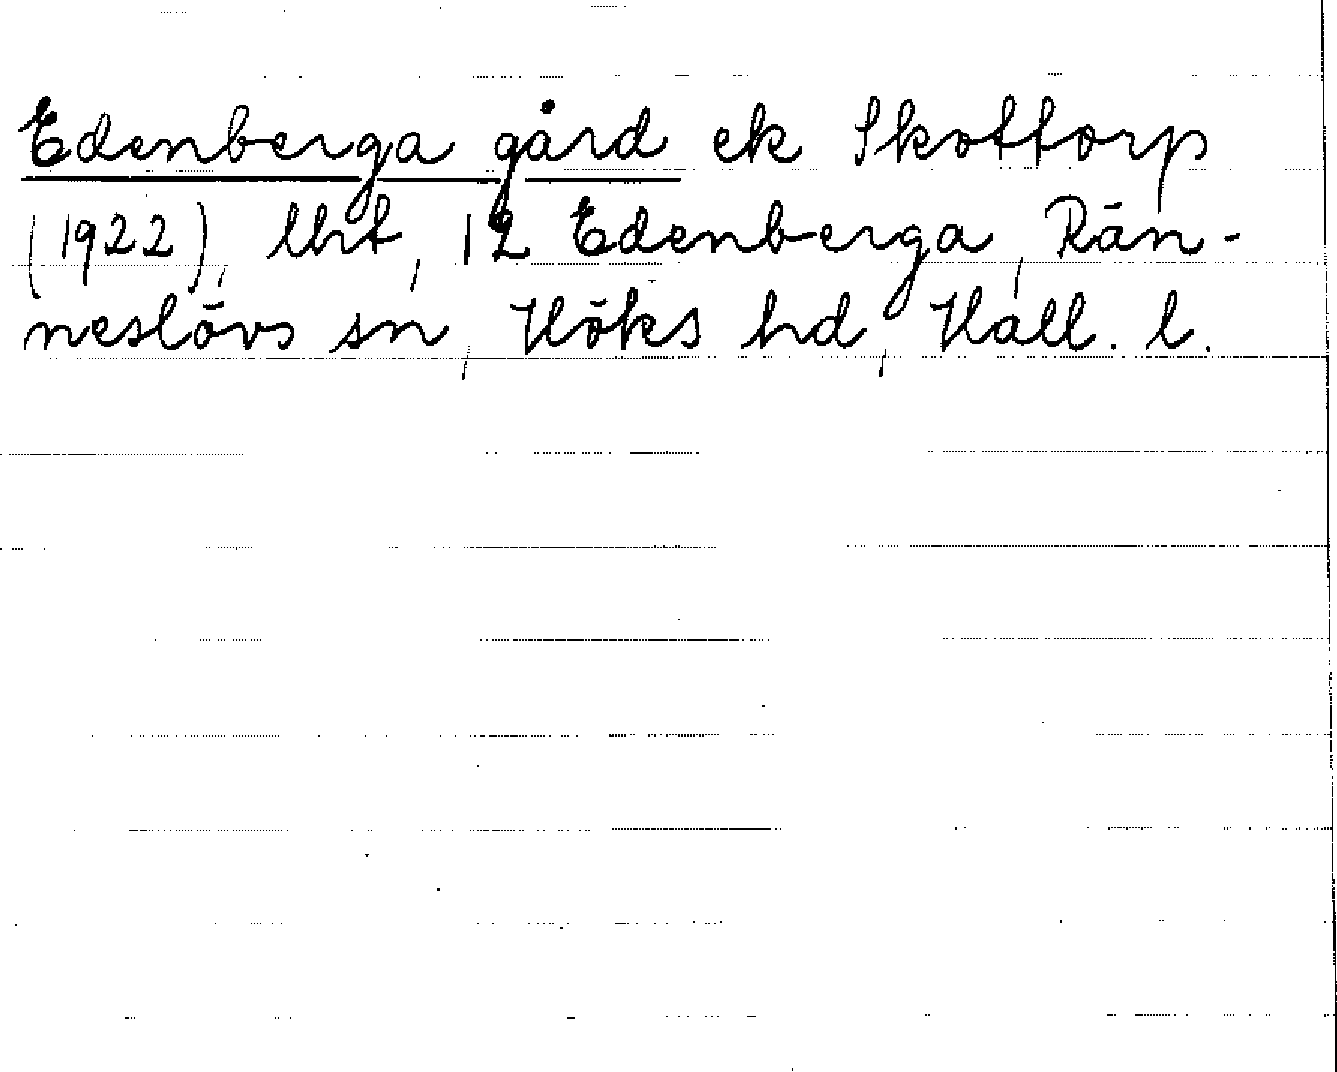 Edenberga gård ek Skottorp
(1922), lht, 12 Edenberga, Rän-
neslövs sn, Höks hd, Hall. l.